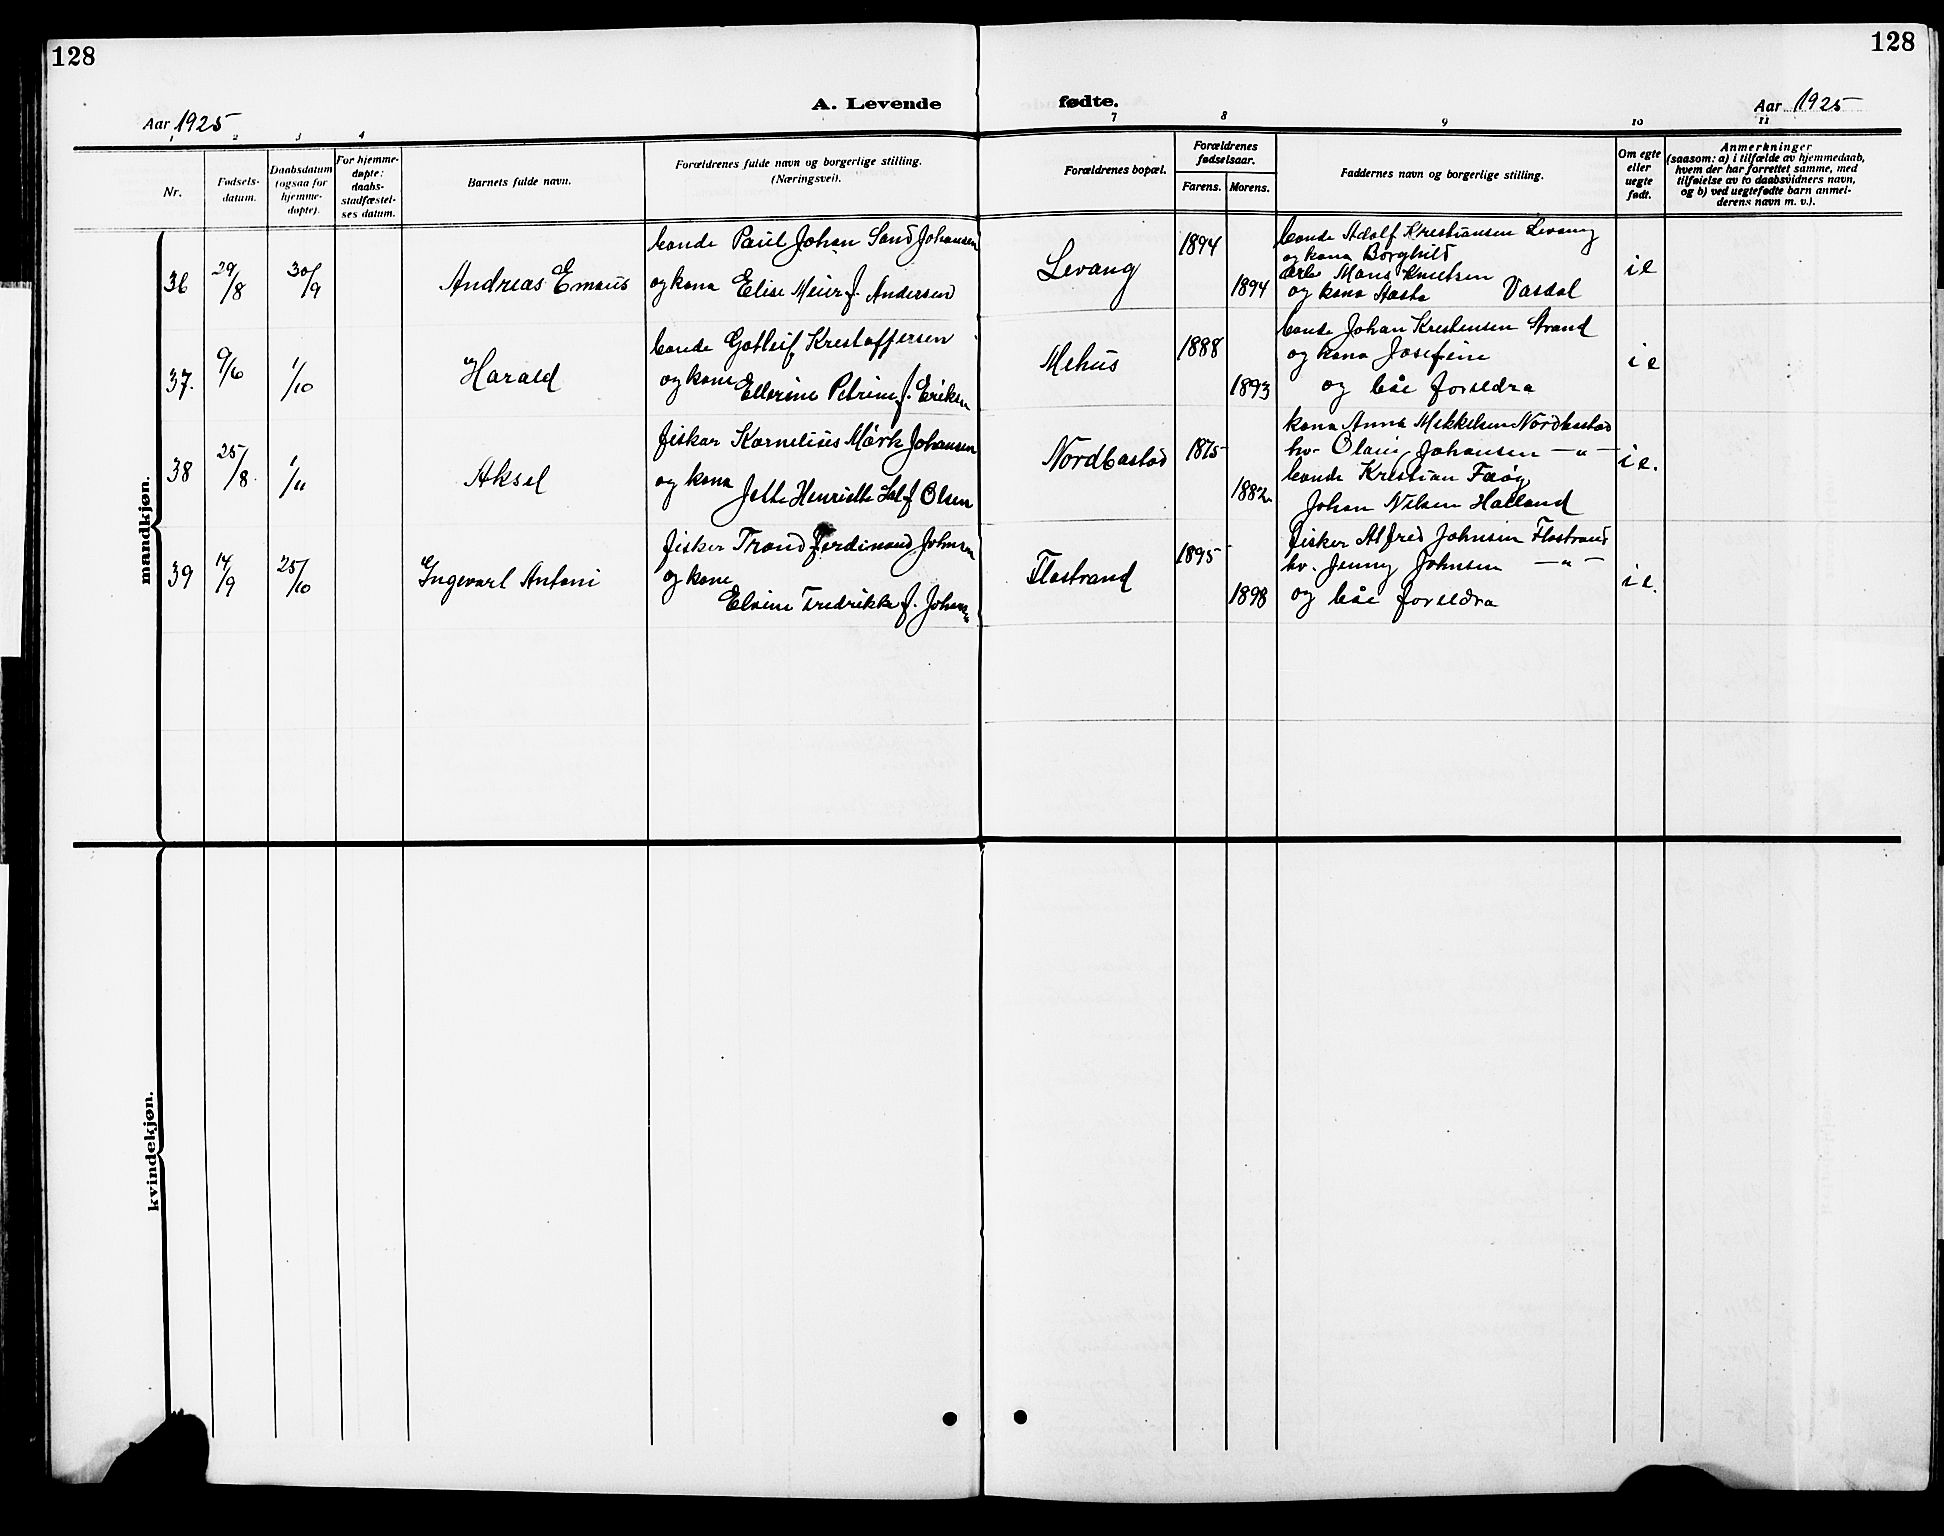 128
128
A. Levende fødte.
Aar 1925
Aar 1925
1 2 3 4 7 8 9 10 11
Nr.
Fødsels-
datum.
Daabsdatum
(ogsaa for
hjemme-
døpte).
For hjemme-
døpte:
daabs-
stadfæstel-
ses datum.
Barnets fulde navn.
Forældrenes fulde navn og borgerlige stilling.
(Næringsvei).
Forældrenes bopæl.
Forældrenes
fødselsaar.
Farens. Morens.
Faddernes navn og borgerlige stilling.
Om egte
eller
uegte
født.
Anmerkninger
(saasom: a) i tilfælde av hjemmedaab,
hvem der har forrettet samme, med
tilføielse av to daabsvidners navn,
og b) ved uegtefødte barn anmel-
derens navn m. v.).
mandkjøn.
36
29/8
30/9
Andreas Emaus
bonde Paul Johan Sand Johansen
og kona Elise Meier f. Andersen
Levang
1894
1894
bonde Adolf Kristiansen Levang
og kona Borghild
arb Mons Knutsen
og kona Aasta Vasdal
i e
37.
9/6
1/10
Harald
bonde Gotleif Kristoffersen
og kone Ellerine Petrine f. Eriksen
Mehus
1888
1893
bonde Johan Kristensen Strand
og kona Josefine
og båe foreldra
i e
38
25/8
1/11
Aksel
fiskar Kornelius Mørk Johansen
og kona Jette Henriette f Olsen
Nordbastad
1875
1882
kona Anna Mikkelsen Nordbastad
hv. Olaine Johansen — " —
bonde Kristian
Johan Nilsen Halland
i e.
39
14/9
25/10
Ingevart Antoni
fisker Trond Ferdinand Johnsen
og kone
Elvine Fredrikke f. Johns.
Flostrand
1895
1898
fisker Alfred Johnsen Flostrand
hv. Jenny Johnsen — " —
og båe foreldra
i e.
kvindekjøn.